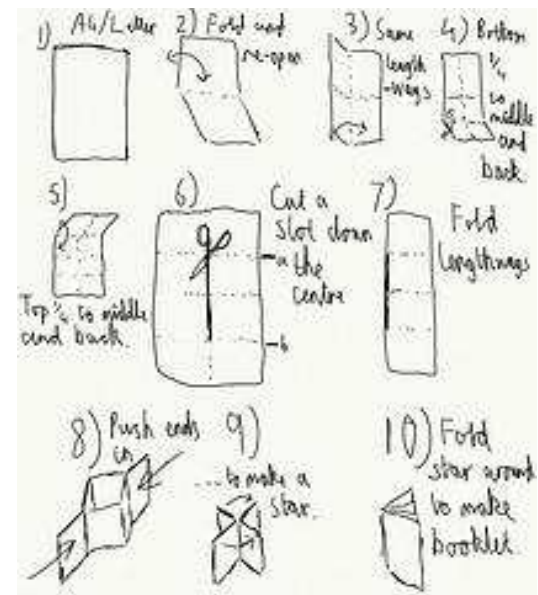 1) A4/Letter
2) Fold and
re-open
3) Same
length
-ways
4) Bottom
1/4
to
middle
and
back.
5)
Top 1/4 to middle
and back.
6)
Cut a
slot down
the
centre
a
b
7)
Fold
lengthways
8) Push ends
in
9)
.... to make a
star.
10) Fold
star around
to make
booklet.